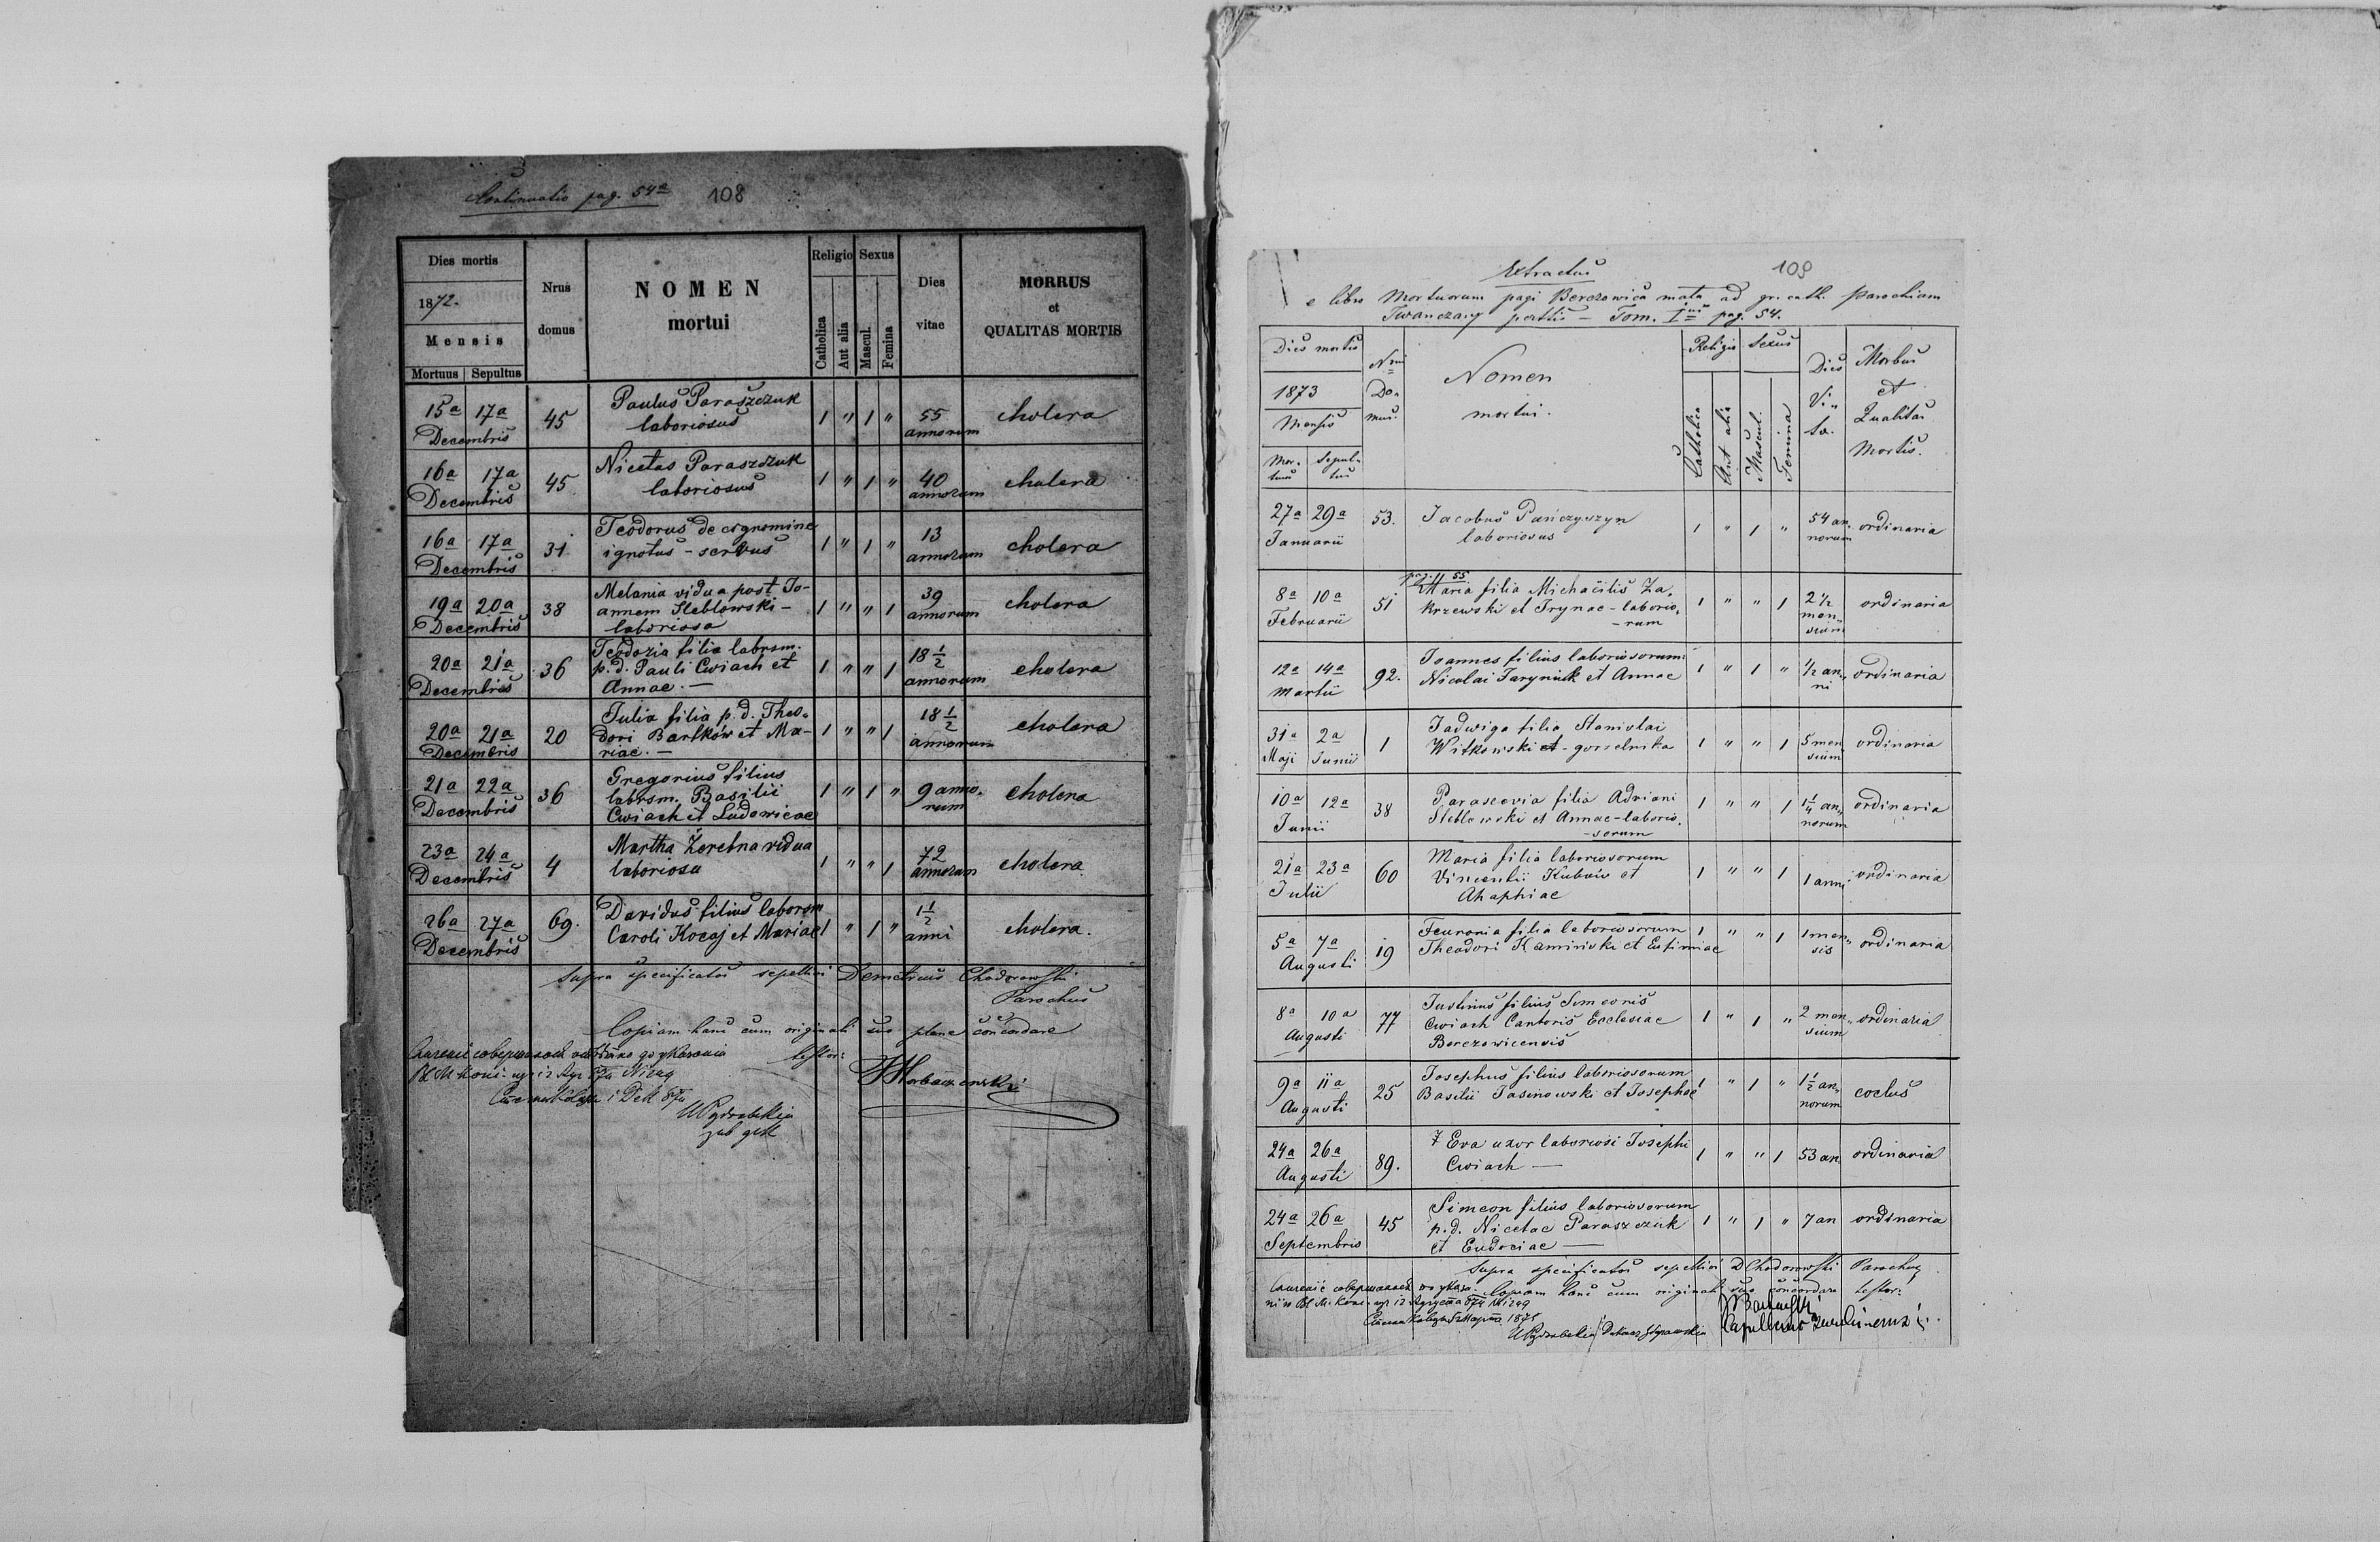 Continuatio pag. 54a 108
Dies mortis
1872.
Mensis
Mortuus Sepultus
Nrus
domus
NOMEN
mortui
Religio Sexus
Catholica
Aut alia
Mascul.
Femina
Dies
vitae
MORRUS
et
QUALITAS MORTIS
15a 17a Decembris 45 Paulus Paraszczuk 1 " 1 " 55 annorum cholera
laboriosus
16a 17a Decembris 45 Nicetas Paraszczuk 1 " 1 " 40 annorum cholera
laboriosus
16a 17a Decembris 31 Teodorus de cognomine 1 " 1 " 13 annorum cholera
ignotus - servus
19a 20a Decembris 38 Melania vidua post Jo- 1 " " 1 39 annorum cholera
annem Steblowski -
laboriosa
20a 21a Decembris 36 Teodozia filia laborsm. 1 " " 1 18 1/2 annorum cholera
p.d. Pauli Cwiach et
Annae. —
20a 21a Decembris 20 Julia filia p.d. Theo- 1 " " 1 18 1/2 annorum cholera
dori Bartków et Ma-
riae. —
21a 22a Decembris 36 Gregorius filius 1 " 1 " 9 anno- rum cholera
laborsm. Basilii
Cwiach et Ludowicae
23a 24a Decembris 4 Martha Żerebna vidua 1 " " 1 72 annorum cholera
laboriosa
26a 27a Decembris 69. Davidus filius laborsm 1 " 1 " 1 1/2 anni cholera.
Caroli Kocaj et Mariae
Supra specificatos sepelivi Demetrius Chodorowski
Parochus
Copiam hanc cum originali suo plene concordare
testor:
Extractus 109
e libro Mortuorum pagi Berezowica mała ad gr. cath. Parochiam
Iwanczany pertts - Tom. I pag. 54.
Dies mortis
1873
Mensis
Mor-
tuus
Sepul-
tus
Nrus
Do-
mus.
Nomen
mortui.
Religio Sexus
Catholica
Aut alia
Mascul.
Femina
Dies
Vi-
tae.
Morbus
et
Qualitas
Mortis.
27a 29a Januarii 53. Jacobus Pańczyszyn 1 " 1 " 54 an- norum ordinaria
laboriosus
pag. 55
8a 10a Februarii 51 Maria filia Michaëlis Za- 1 " " 1 2 1/2 men- sium ordinaria
krzewski et Irynae - laborio-
- rum
12a 14a Martii 92. Joannes filius laboriosorum 1 " 1 " 1/2 an- ni ordinaria
Nicolai Jaryniuk et Annae
31a 2a Maji Junii 1 Jadwiga filia Stanislai 1 " " 1 5 men- sium ordinaria
Witkowski et - gorzelnika
10a 12a Junii 38 Parascevia filia Adriani 1 " " 1 1 1/4 an- norum ordinaria
Steblowski et Annae - laborio-
- sorum
21a 23a Julii 60 Maria filia laboriosorum 1 " " 1 1 anni ordinaria
Vincentii Kubów et
Ahaphiae
5a 7a Augusti 19 Feuronia filia laboriosorum 1 " " 1 1 men- sis ordinaria
Theodori Kaminski et Eufimiae
8a 10a Augusti 77 Justinus filius Simeonis 1 " 1 " 2 men- sium ordinaria
Cwiach Cantoris Ecclesiae
Berezowicensis
9a 11a Augusti 25 Josephus filius laboriosorum 1 " 1 " 1 1/2 an- norum coclus
Basilii Jasinowski et Josephae
24a 26a Augusti 89. Eva uxor laboriosi Josephi 1 " " 1 53 an. ordinaria
Cwiach —
24a 26a Septembris 45 Simeon filius laboriosorum 1 " 1 " 7 an ordinaria
p.d. Nicetae Paraszczuk
et Eudociae —
Supra specificatos sepelivi DChodorowski Parochus
Copiam hanc cum originali suo concordare testor: